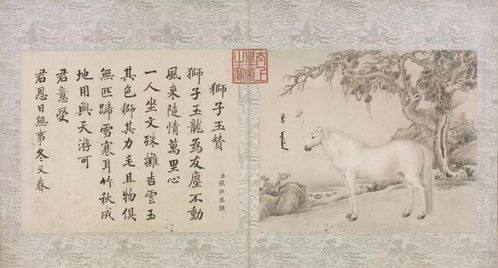 太上皇帝之寶
獅子玉贊
獅子玉龍為友塵不動
風来陡情萬里心
一人坐文殊擁吉雲玉
其色獅其力毛且物俱
無匹蹄雪寒耳竹秋成
地用與天游可
君意受
君恩日無事冬又春